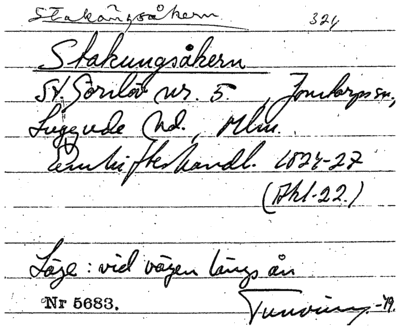 Stakungsåkern 324
Stakungsåkern
St. Sörslöv nr. 5, Jonstorps sn,
Luggude hd., Mlm.
Enskifteshandl. 1824-27
(Akt 22.)
Läge: vid vägen längs ån
Nr 5683. -19.